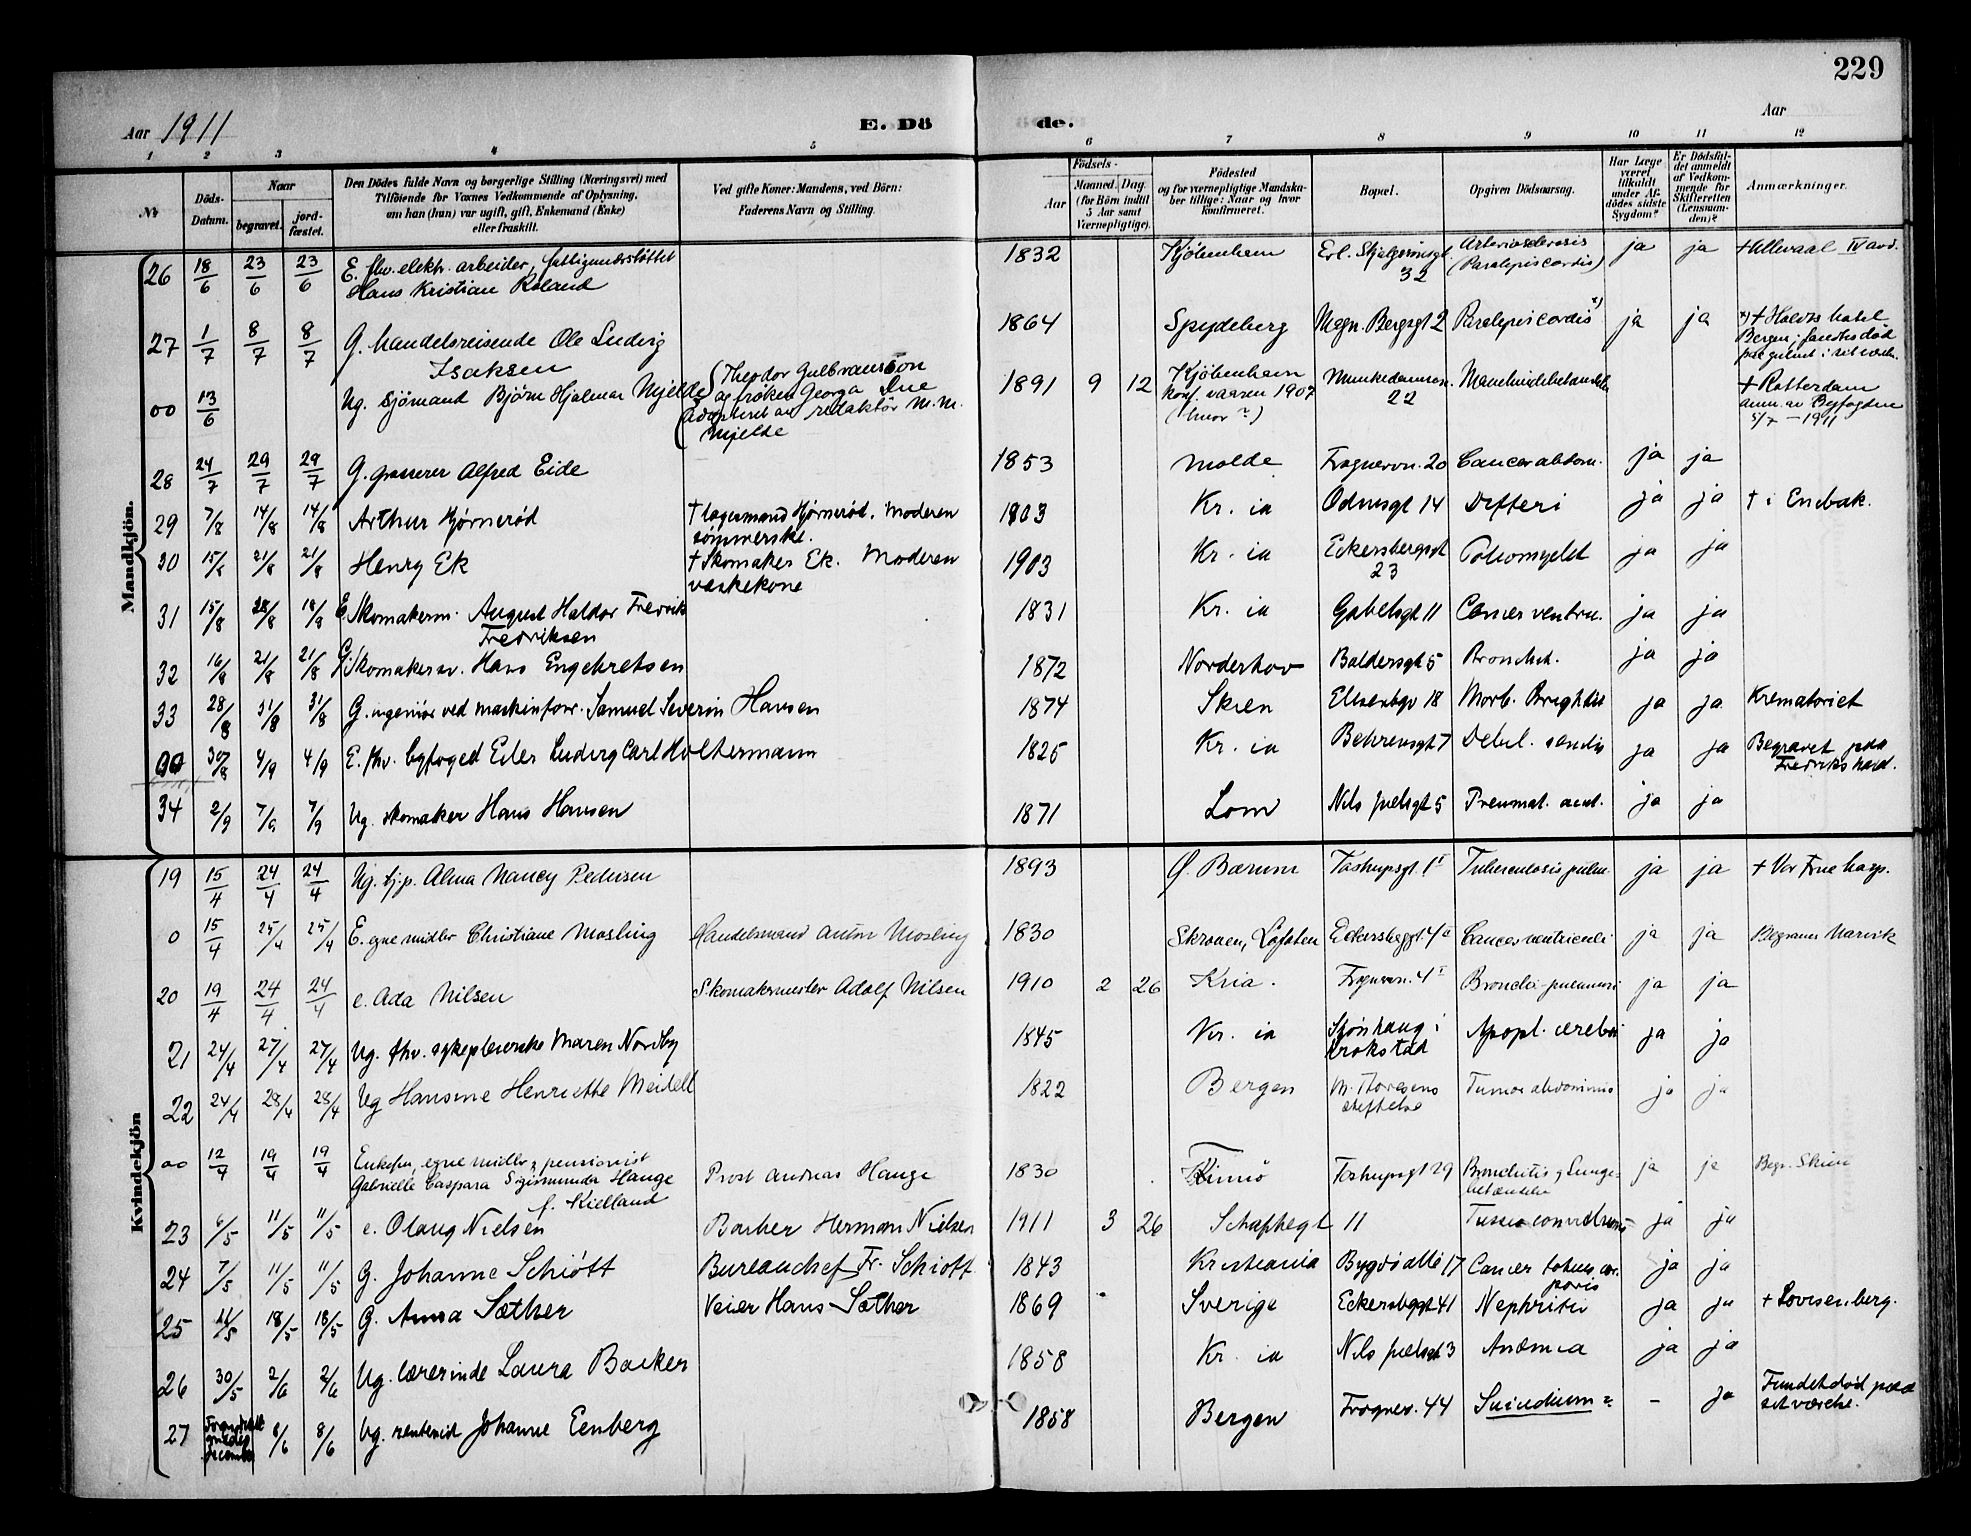 229
Aar 1911
E. Dö de.
Aar
1 2 3 4 5 6 7 8 9 10 11 12
No
Döds-Datum.
Naar
begravet.
jord-fæstet.
Den Dödes fulde Navn og borgerlige Stilling (Næringsvei) med
Tilföiende for Voxnes Vedkommende af Oplysning,
om han (hun) var ugift, gift, Enkemand (Enke)
eller fraskilt.
Ved gifte Koner: Mandens, ved Börn:
Faderens Navn og Stilling.
Födsels-
Aar
Maaned. Dag.
(for Börn indtil
5 Aar samt
Værnepligtige).
Födested
og for værnepligtige Mandska-
ber tillige: Naar og hvor
konfirmeret.
Bopæl.
Opgiven Dödsaarsag.
Har Læge
været
tilkaldt
under Af-
dödes sidste
Sygdom?
Er Dödsfal-
det anmeldt
af Vedkom-
mende for
Skifteretten
(Lensman-
den)?
Anmærkninger.
Mandkjön.
26 18/6 23/6 23/6 E. fhv. elektr. arbeider, fattigunderstøttet 1832 Kjöbenhavn Erl. Skjalgssønsgt 32 Arteriosclerosis (Paralysis cordis) ja ja + Ullevaal IV avd.
Hans Kristian Roland
27 1/7 8/7 8/7 G. handelsreisende Ole Ludvig 1864 Spydeberg Magn. Bergsgt 2 Paralysis cordis x) ja ja x) + Holdts hotel
Isaksen Bergen; fandtes død
paa gulvet i sit værelse.
00 13/6 Ug. Sjömand Björn Hjalmar Mjelde (Theodor Gulbransson 1891 9 12 Kjöbenhavn Munkedamsvn. 22 + Rotterdam
og frøken Georga Due konf. vaaren 1907 anm. av Byfogden
adopteret av redaktør M. M. (hvor?) 5/7 - 1911
Mjelde
28 24/7 29/7 29/7 G. grosserer Alfred Eide 1853 Molde Frognervn. 20 Cancer abdom. ja ja
29 7/8 14/8 14/8 Arthur Hjørnerød + lagermand Hjørnerød. Moderen 1903 Kr. ia Odinsgt 14 Difteri ja ja + i Enebak.
sømmerske.
30 15/8 21/8 21/8 Henry Ek + Skomaker Ek. Moderen 1903 Kr. ia Eckersbergsgt 23 Poliomyelit ja ja
vaskekone
31 15/8 28/8 18/8 E. Skomakerm. August Haldor Fredrik 1831 Kr. ia Gabelsgt 11 Cancer ventric. ja ja
Fredriksen
32 16/8 21/8 21/8 G. Skomakersv. Hans Engebretsen 1872 Norderhov Baldersgt 5 Bronchit. ja ja
33 28/8 31/8 31/8 G. ingeniør ved maskinforr. Samuel Severin Hansen 1874 Skien Elisenbgv 18 Morb. Brightii ja ja Krematoriet
00 30/8 4/9 4/9 E. fhv. byfoged Eiler Ludvig Carl Holtermann 1825 Kr. ia Behrensgt 7 Debil. senilis ja ja Begravet paa
Fredrikshald.
34 2/9 7/9 7/9 Ug. skomaker Hans Hansen 1871 Lom Nils Juelsgt 5 Pneumat. acut. ja ja
Kvindekjön
19 15/4 24/4 24/4 Ug. tj.p. Alma Nancy Pedersen 1893 Ø. Bærum Tostrupsgt. 1 I Tuberculosis pulm. ja ja + Vor Frue hosp.
0 15/4 25/4 25/4 E. egne midler Christiane Mosling Handelsmand Anton Mosling 1830 Skroven, Lofoten Eckersbggt. 4 a Cancer ventriculi ja ja Begraves Narvik
20 19/4 24/4 24/4 e. Ada Nilsen Skomakermester Adolf Nilsen 1910 2 26 Kria. Frognervn. 4 I Broncho-pneumoni ja ja
21 24/4 27/4 27/4 Ug. fhv. sykepleierske Maren Nordby 1845 Kr. ia Sjönhaug i Krokstad Apopl. cerebri ja ja
22 24/4 28/4 28/4 Ug Hansine Henriette Meidell 1822 Bergen M. Thoresens stiftelse Tumor abdominis ja ja
00 12/4 19/4 19/4 Enkefru, egne midler, pensionist
Gabrielle Caspara Sigismunda Hauge Prost Andreas Hauge 1830 Finnö Tostrupsgt 29 Bronchitis, Lunge- ja ja Begr. Skien
f. Kielland betændelse
23 6/5 11/5 11/5 e. Olaug Nielsen Barber Herman Nielsen 1911 3 26 Schaftegt 11 Tussis convulsiva ja ja
24 7/5 11/5 11/5 G. Johanne Schiött Bureauchef Fr. Schiött 1843 Kristiania Bygdö allé 17 Cancer totius cor- ja ja
poris
25 14/5 18/5 18/5 G. Anna Sæther Veier Hans Sæther 1869 Sverige Eckersbggt 41 Nephritis ja ja + Lovisenberg.
26 30/5 2/6 2/6 Ug. lærerinde Laura Backer 1858 Kr. ia Nils Juelsgt 3 Anæmia ja ja
27 8/6 8/6 Ug. rentenist Johanne Eenberg 1858 Bergen Frognerv. 44 Suicidium? - ja Fundet død paa
sit værelse.